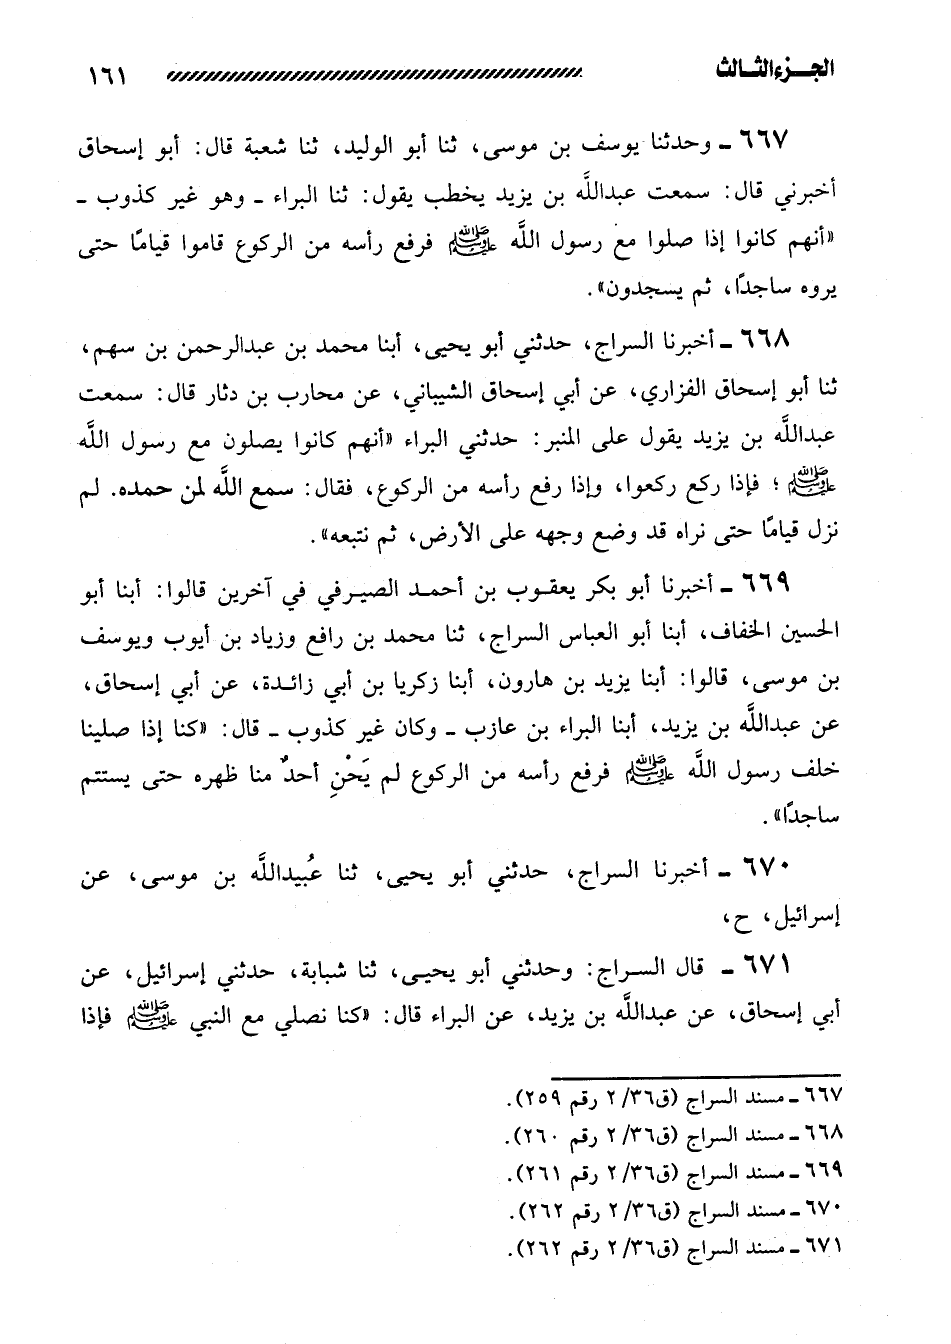 الجـزء الثـالث ١٦١
٦٦٧ ـ وحدثنا يوسف بن موسى، ثنا أبو الوليد، ثنا شعبة قال: أبو إسحاق
أخبرني قال: سمعت عبداللَّه بن يزيد يخطب يقول: ثنا البراء ـ وهو غير كذوب ـ
«أنهم كانوا إذا صلوا مع رسول اللَّه ﷺ فرفع رأسه من الركوع قاموا قيامًا حتى
يروه ساجدًا، ثم يسجدون».
٦٦٨ ـ أخبرنا السراج، حدثني أبو يحيى، أبنا محمد بن عبدالرحمن بن سهم،
ثنا أبو إسحاق الفزاري، عن أبي إسحاق الشيباني، عن محارب بن دثار قال: سمعت
عبداللَّه بن يزيد يقول على المنبر: حدثني البراء «أنهم كانوا يصلون مع رسول اللَّه
ﷺ ؛ فإذا ركع ركعوا، وإذا رفع رأسه من الركوع، فقال: سمع اللَّه لمن حمده. لم
نزل قيامًا حتى نراه قد وضع وجهه على الأرض، ثم نتبعه».
٦٦٩ ـ أخبرنا أبو بكر يعقـوب بن أحمـد الصيـرفي في آخرين قالوا: أبنا أبو
الحسين الخفاف، أبنا أبو العباس السراج، ثنا محمد بن رافع وزياد بن أيوب ويوسف
بن موسى، قالوا: أبنا يزيد بن هارون، أبنا زكريا بن أبي زائـدة، عن أبي إسحاق،
عن عبداللَّه بن يزيد، أبنا البراء بن عازب ـ وكان غير كذوب ـ قال: «كنا إذا صلينا
خلف رسول اللَّه ﷺ فرفع رأسه من الركوع لم يَحْنِ أحدٌ منا ظهره حتى يستتم
ساجدًا».
٦٧٠ ـ أخبرنا السراج، حدثني أبو يحيى، ثنا عُبيداللَّه بن موسى، عن
إسرائيل، ح،
٦٧١ ـ قال السراج: وحدثني أبو يحيـى، ثنا شبابة، حدثني إسرائيل، عن
أبي إسحاق، عن عبداللَّه بن يزيد، عن البراء قال: «كنا نصلي مع النبي ﷺ فإذا
٦٦٧ ـ مسند السراج (ق٣٦/ ٢ رقم ٢٥٩).
٦٦٨ ـ مسند السراج (ق٣٦/ ٢ رقم ٢٦٠).
٦٦٩ ـ مسند السراج (ق٣٦/ ٢ رقم ٢٦١).
٦٧٠ ـ مسند السراج (ق٣٦/ ٢ رقم ٢٦٢).
٦٧١ ـ مسند السراج (ق٣٦/ ٢ رقم ٢٦٢).